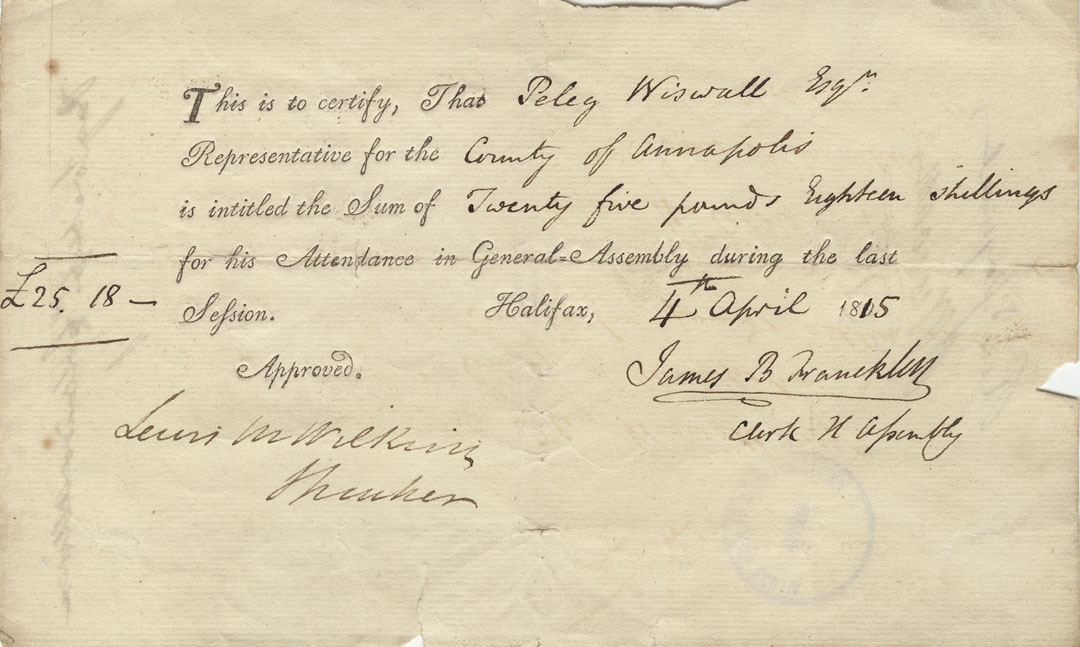 This is to certify, That Peleg Wiswall Esqr.
Representative for the County of Annapolis
is intitled the Sum of Twenty five pounds Eighteen shillings
for his Attendance in General-Assembly during the last
£25. 18 —
Seſsion. Halifax, 4th April 1815
Approved. James B Francklin
Lewis M Wilkins Clerk H Aſsembly
Speaker